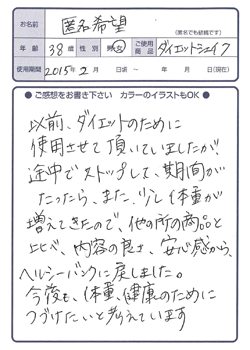 お名前 匿名希望
(匿名でも結構です)
年齢 38歳 性別 男・女 ご使用商品 ダイエットシェイク
使用期間 2015年2月 日頃 ~ 年 月 日 (現在)
●ご感想をお書き下さい カラーのイラストもOK●
以前、ダイエットのために
使用させて頂いていましたが、
途中でストップして、期間が
たったら、また、少し体重が
増えてきたので、他の所の商品と
比べ、内容の良さ、安心感から、
ヘルシーバンクに戻しました。
今後も、体重、健康のために
つづけたいと考えています